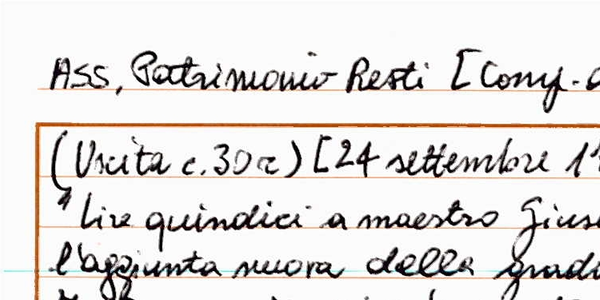 ASS, Patrimonio Resti [Comp.
(Uscita c. 30 r) [24 settembre
"Lire quindici a maestro
l'aggiunta nuova della